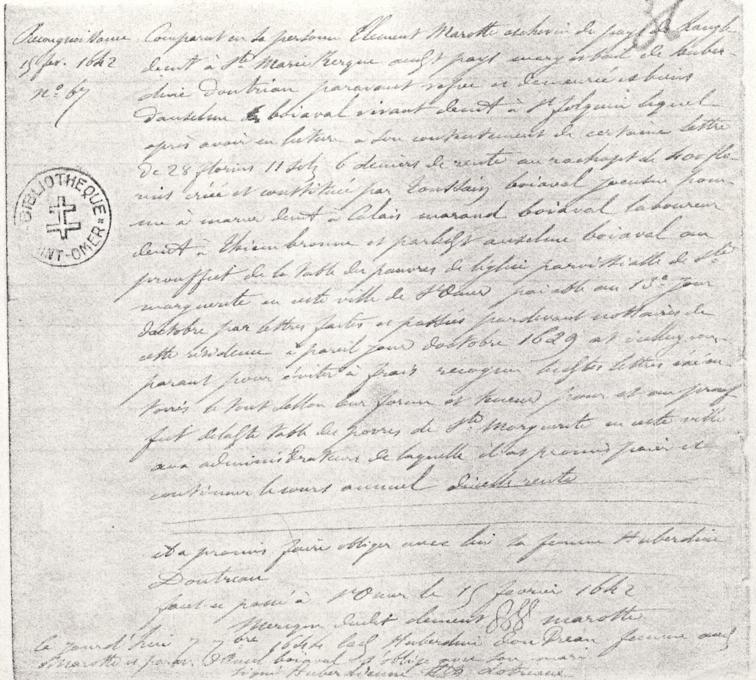 Recongnoissance
15 fev. 1642
n° 67
Comparut en sa personne Clement Marotte eschevin du pays de Langle
demt à Ste Marie Kerque audit pays mary et bail de huber-
dine Doutrian paravant vefve et demeurée es biens
d'anselme boiaval vivant demt à St folquin lequel
après avoir eu lecture à son contentement de certaine lettre
de 28 florins 11 sols 6 deniers de rente au rachapt de 400 flo-
rins créée et constituée par Toussain boiaval jeusne hom-
me à marier demt à Calais marand boiaval laboureur
demt à Thiembronne et par ledit anselme boiaval au
prouffit de la table des pauvres de l'église parroissialle de Ste
marguerite en ceste ville de St Omer paiable au 13e jour
d'octobre par lettres faites et passées pardevant nottaires de
ceste résidence à pareil jour d'octobre 1629 at icelluy com-
parant pour éviter à frais recognu lesdites lettres exécu-
toires le tout sellon leur forme et teneur pour et au prouf-
fict de ladte table des povres de Ste Marguerite en ceste ville
aux administrateurs de laquelle il at promis paier et
continuer le cours annuel d'icelle rente
et a promis faire obliger avec luy sa femme Huberdine
Doutreau
fait et passé à St Omer le 15 febvrier 1642
Merque dudit clement marotte
le jourd'hui 7 7bre 1644 ladt Huberdine Doutreau femme audt
Marotte et parav. boiaval s'oblige avec son mari
signé Huberdienne Dotreaux
BIBLIOTHEQUE
SAINT-OMER